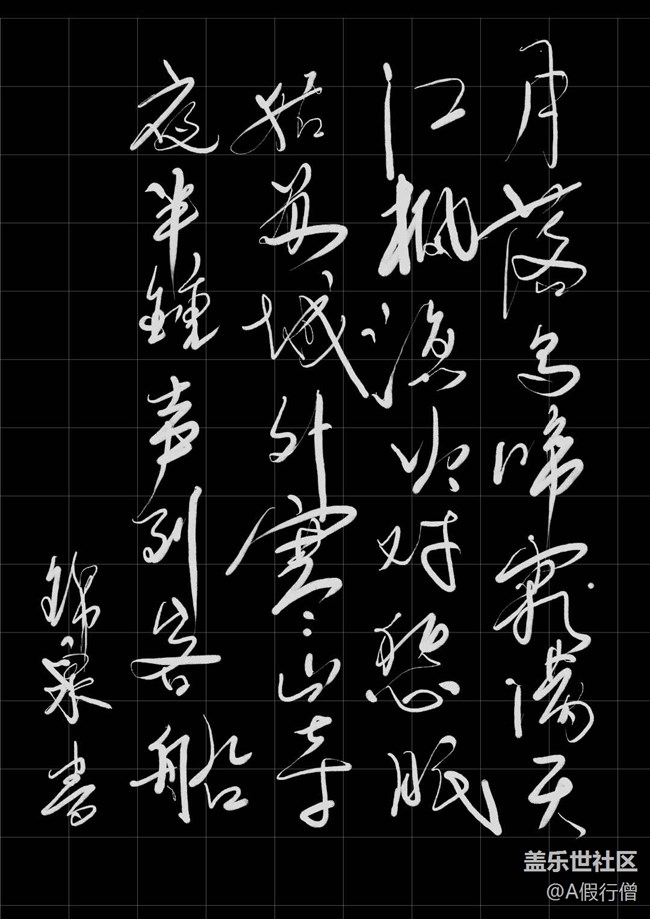 月落乌啼霜满天
江枫渔火对愁眠
姑苏城外寒山寺
夜半鍾声到客船
锦泉书
盖乐世社区
@A假行僧